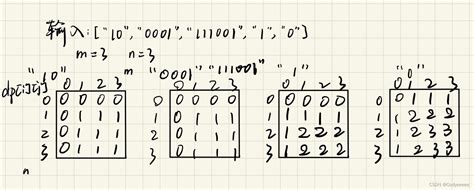 输入:["10","0001","111001","1","0"]
m=3 n=3
"10" m "0001" "111001" "1" "0"
dp[i][j] 0 1 2 3 0 1 2 3 0 1 2 3 0 1 2 3
0 0 0 0 0 0 0 0 0 0 0 0 0 0 0 0 0 0 1 1 1
1 0 1 1 1 1 0 1 1 1 1 0 1 1 1 1 1 2 2 2
2 0 1 1 1 2 0 1 1 1 2 1 2 2 2 2 1 2 3 3
3 0 1 1 1 3 0 1 1 1 3 1 2 2 2 3 1 2 3 3
n